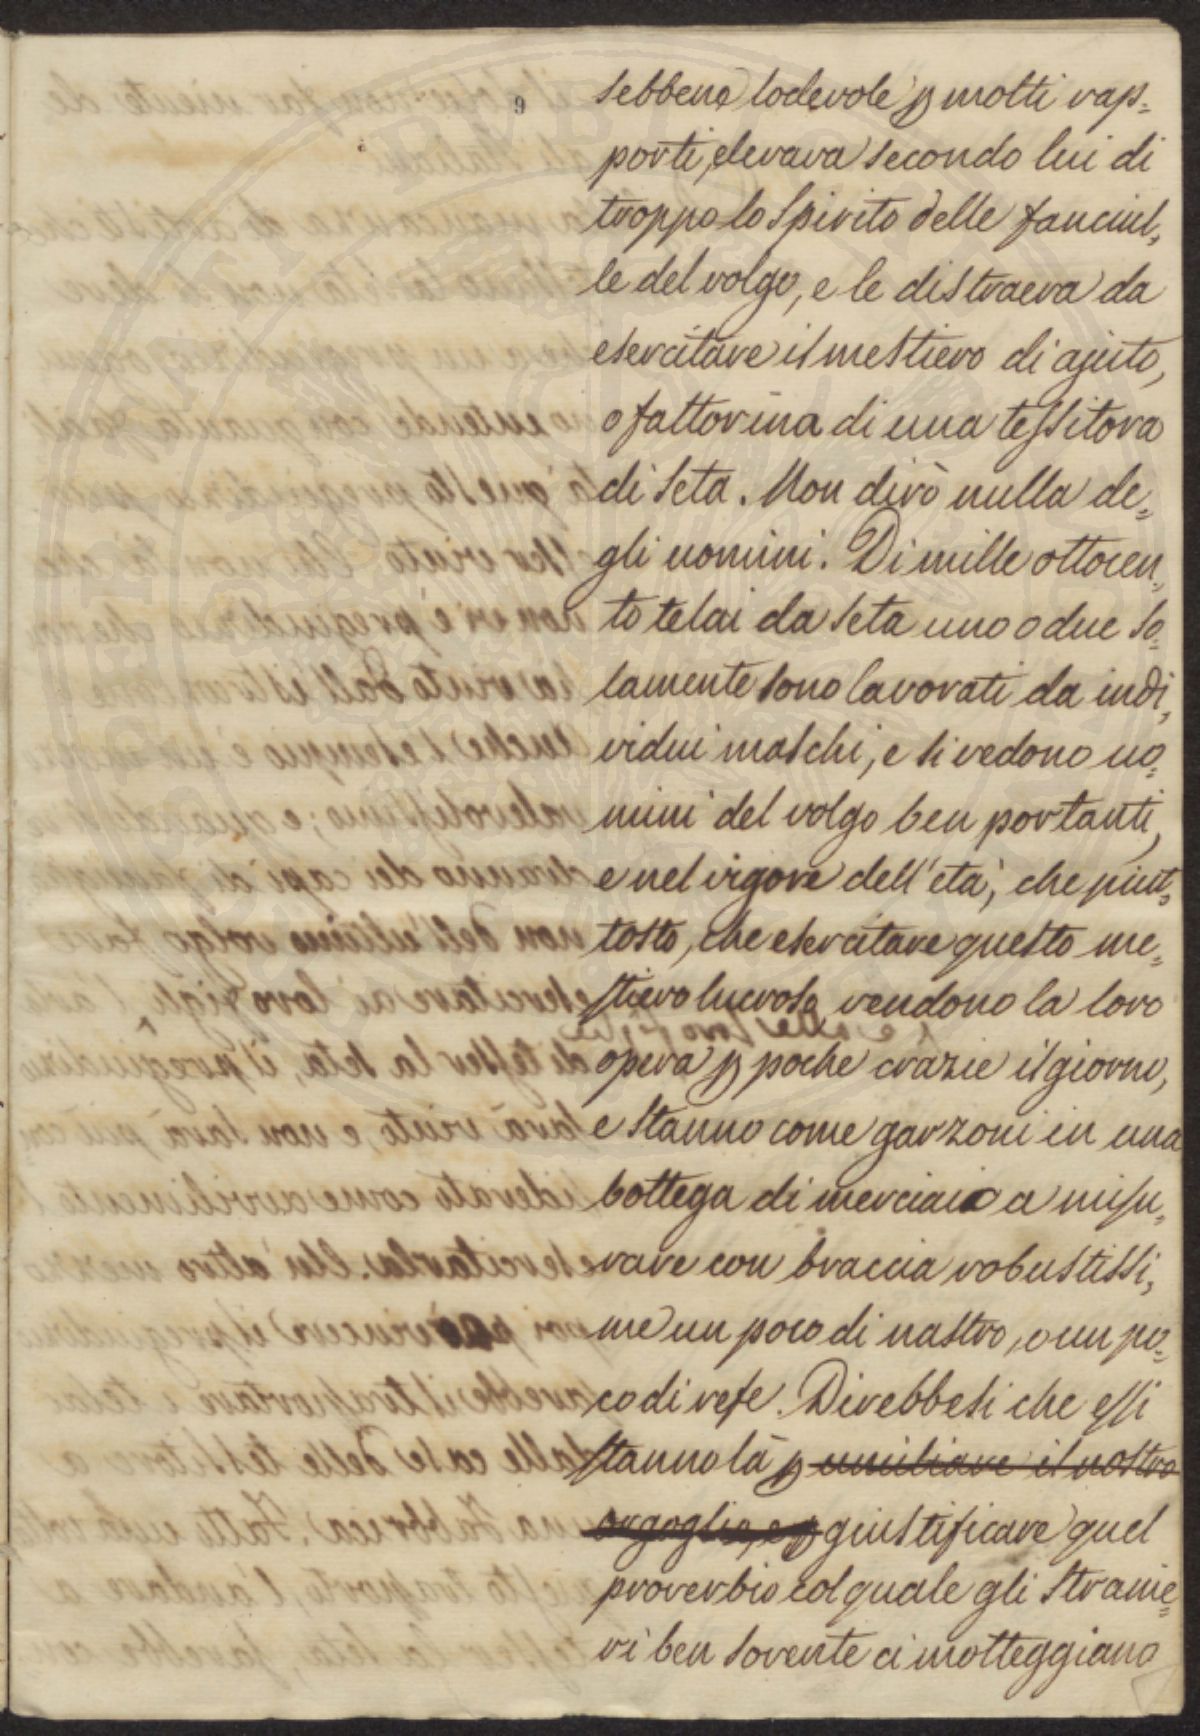 9
sebbene lodevole p molti rap=
porti, elevava secondo lui di
troppo lo Spirito delle fanciul=
le del volgo, e le distraeva da
esercitare il mestiero di ajuto,
o fattorina di una tessitora
di Seta. Non dirò nulla de=
gli uomini. Di mille ottocen=
to telai da Seta uno o due so=
lamente sono lavorati da indi=
vidui maschi, e si vedono uo=
mini del volgo ben portanti,
e nel vigore dell'età, che piut=
tosto, che esercitare questo me=
stiero lucroso vendono la loro
opera p poche crazie il giorno,
e stanno come garzoni in una
bottega di merciaio a misu=
rare con braccia robustissi=
me un poco di nastro, o un po=
co di refe. Direbbesi che essi
stanno là p umiliare il nostro
orgoglio, e p giustificare quel
proverbio col quale gli stranie=
ri ben sovente ci motteggiano